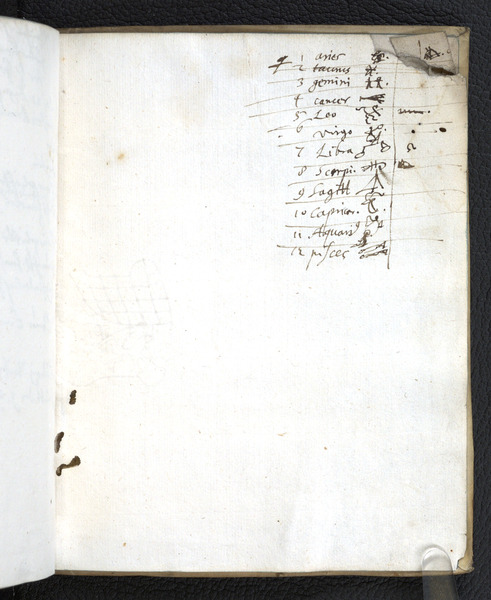 1 aries
2 taurus
3 gemini
4 cancer
5 Leo
6 virgo
7 Libra
8 Scorpi.
9 Sagitt
10 Capricor.
11 Aquari9
12 pisces